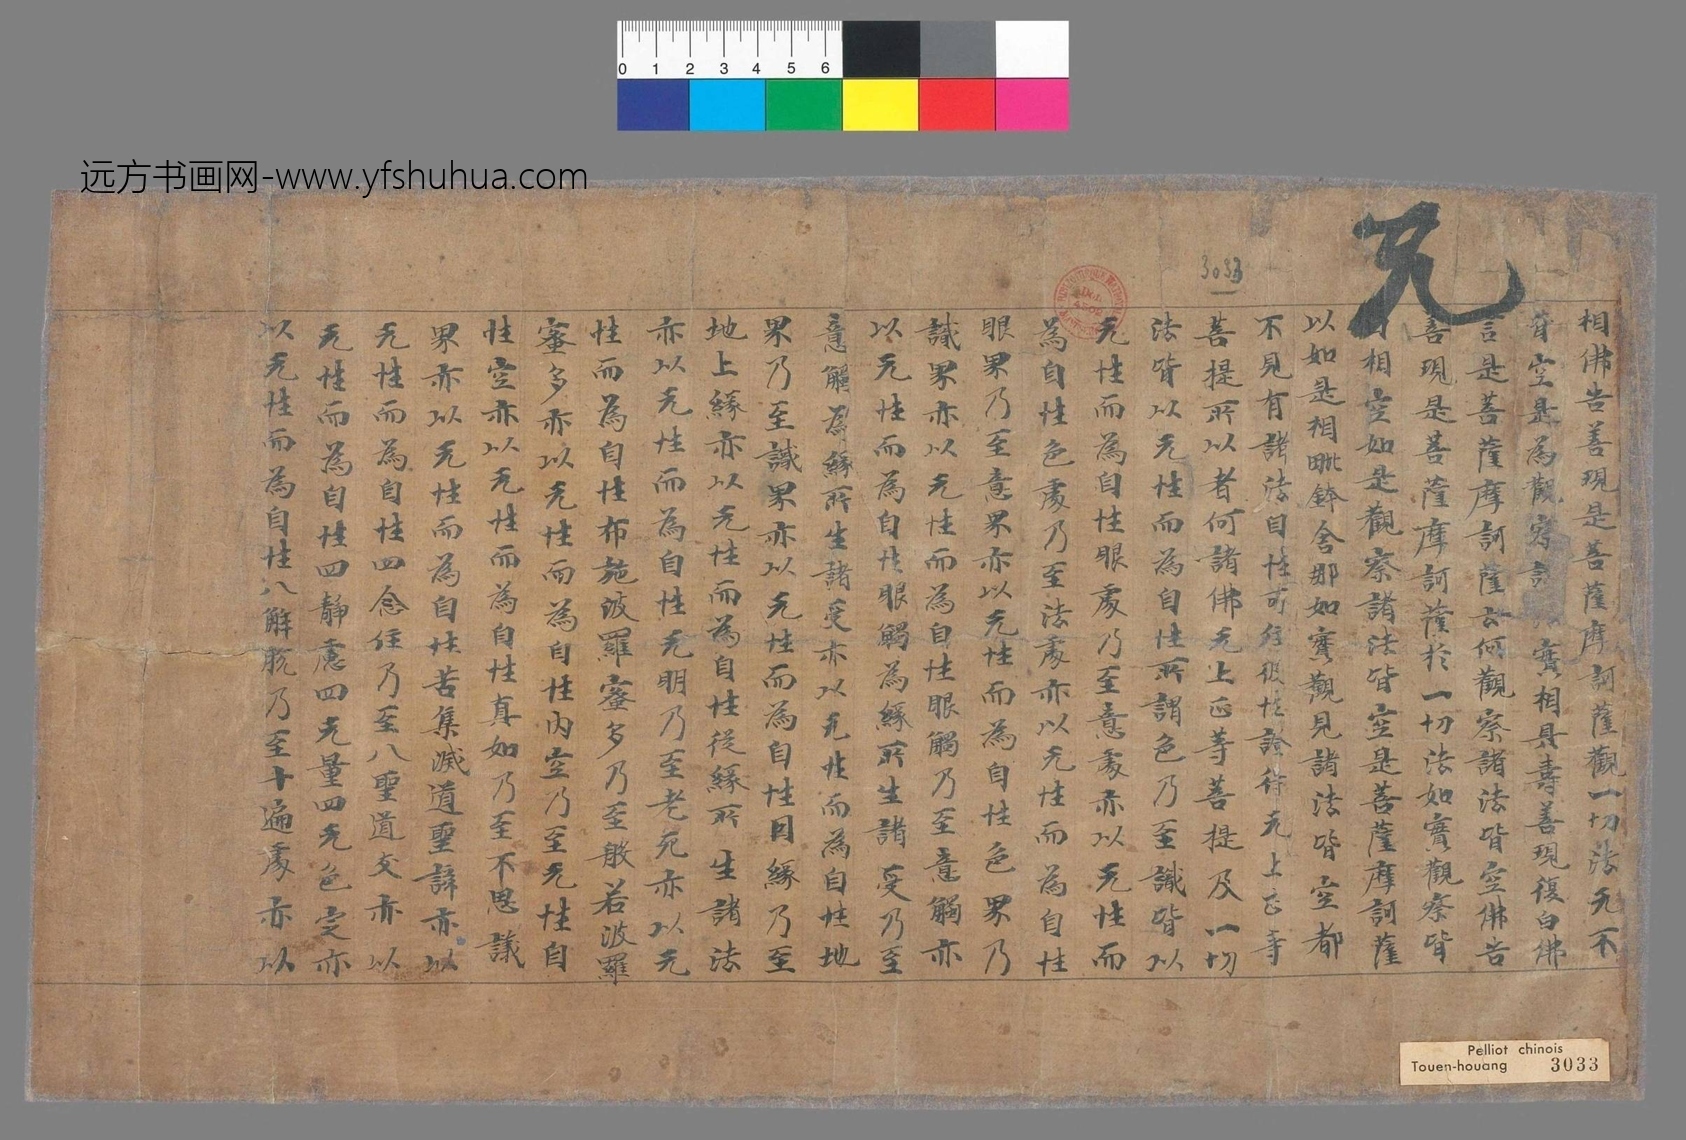 远方书画网-www.yfshuhua.com
0 1 2 3 4 5 6
3033
兑
相佛告善現是菩薩摩訶薩觀一切法无不
皆空是為觀察諸 實相具壽善現復白佛
言是菩薩摩訶薩云何觀察諸法皆空佛告
善現是菩薩摩訶薩於一切法如實觀察皆
相空如是觀察諸法皆空是菩薩摩訶薩
以如是相毗鉢舍那如實觀見諸法皆空都
不見有諸法自性可住彼性證得无上正等
菩提所以者何諸佛无上正等菩提及一切
法皆以无性而為自性所謂色乃至識皆以
无性而為自性眼處乃至意處亦以无性而
為自性色處乃至法處亦以无性而為自性
眼界乃至意界亦以无性而為自性色界乃
識界亦以无性而為自性眼觸乃至意觸亦
以无性而為自性眼觸為緣所生諸受乃至
意觸為緣所生諸受亦以无性而為自性地
界乃至識界亦以无性而為自性因緣乃至
地上緣亦以无性而為自性從緣所生諸法
亦以无性而為自性无明乃至老死亦以无
性而為自性布施波羅蜜多乃至般若波羅
蜜多亦以无性而為自性內空乃至无性自
性空亦以无性而為自性真如乃至不思議
界亦以无性而為自性苦集滅道聖諦亦以
无性而為自性四念住乃至八聖道支亦以
无性而為自性四靜慮四无量四无色定亦
以无性而為自性八解脫乃至十遍處亦以
Pelliot chinois
Touen-houang 3033